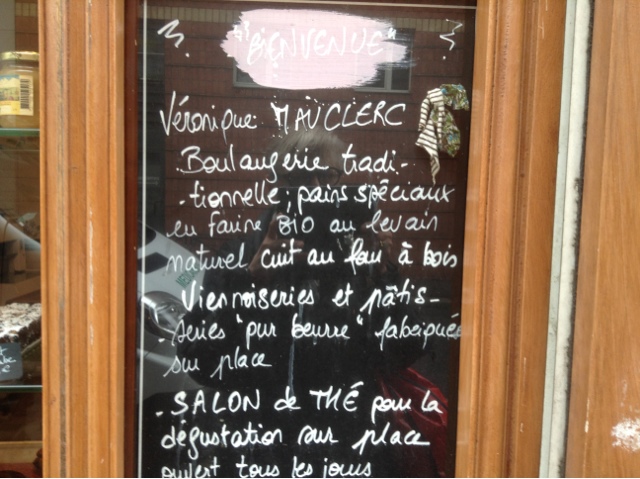 "BIENVENUE"
Véronique MAUCLERC
Boulangerie tradi-
-tionnelle ; pains spéciaux
en farine BIO au levain
naturel cuit au feu à bois
Viennoiseries et pâtis-
-series "pur beurre" fabriquées
sur place
- SALON de THÉ pour la
dégustation sur place
ouvert tous les jours